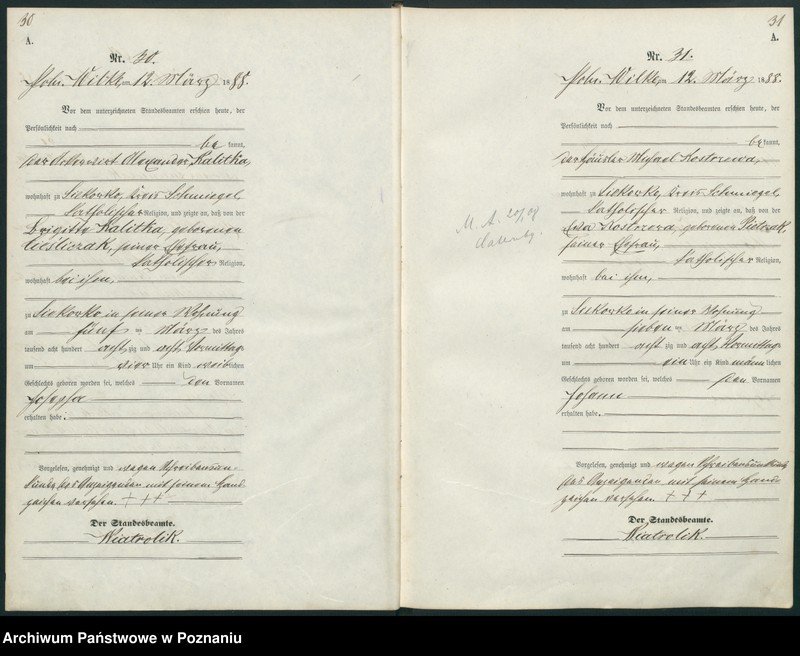 30
A.
Nr. 30.
Poln. Wilke, am 12. März 1888.
Vor dem unterzeichneten Standesbeamten erschien heute, der
Persönlichkeit nach
be kannt,
der Ackerwirt Alexander Kalitka,
wohnhaft zu Siekowko, Kreis Schmiegel,
katholischer Religion, und zeigte an, daß von der
Brigitta Kalitka, geborenen
Cieśliczak, seiner Ehefrau,
katholischer Religion,
wohnhaft bei ihm,
zu Siekowko in seiner Wohnung
am fünf ten März des Jahres
tausend acht hundert acht zig und acht, Vormittag
um vier Uhr ein Kind weib lichen
Geschlechts geboren worden sei, welches den Vornamen
Josepha
erhalten habe.
Vorgelesen, genehmigt und wegen Schreibensun-
kunde des Anzeigenden mit seinem Hand-
zeichen versehen. + + +
Der Standesbeamte.
Wiatrolik.
31
A.
Nr. 31.
Poln. Wilke, am 12. März 1888.
Vor dem unterzeichneten Standesbeamten erschien heute, der
Persönlichkeit nach
be kannt,
der Häusler Michael Kostrzewa,
wohnhaft zu Siekowko, Kreis Schmiegel,
katholischer Religion, und zeigte an, daß von der
Kostrzewa, geborenen Pietrzak,
seiner Ehefrau,
katholischer Religion,
wohnhaft bei ihm,
zu Siekowko in seiner Wohnung
am sieben ten März des Jahres
tausend acht hundert acht zig und acht, Vormittag
um ein Uhr ein Kind männ lichen
Geschlechts geboren worden sei, welches den Vornamen
Johann
erhalten habe.
Vorgelesen, genehmigt und wegen Schreibensunkunde
des Anzeigenden mit seinem Hand-
zeichen versehen. + + +
Der Standesbeamte.
Wiatrolik.
Archiwum Państwowe w Poznaniu